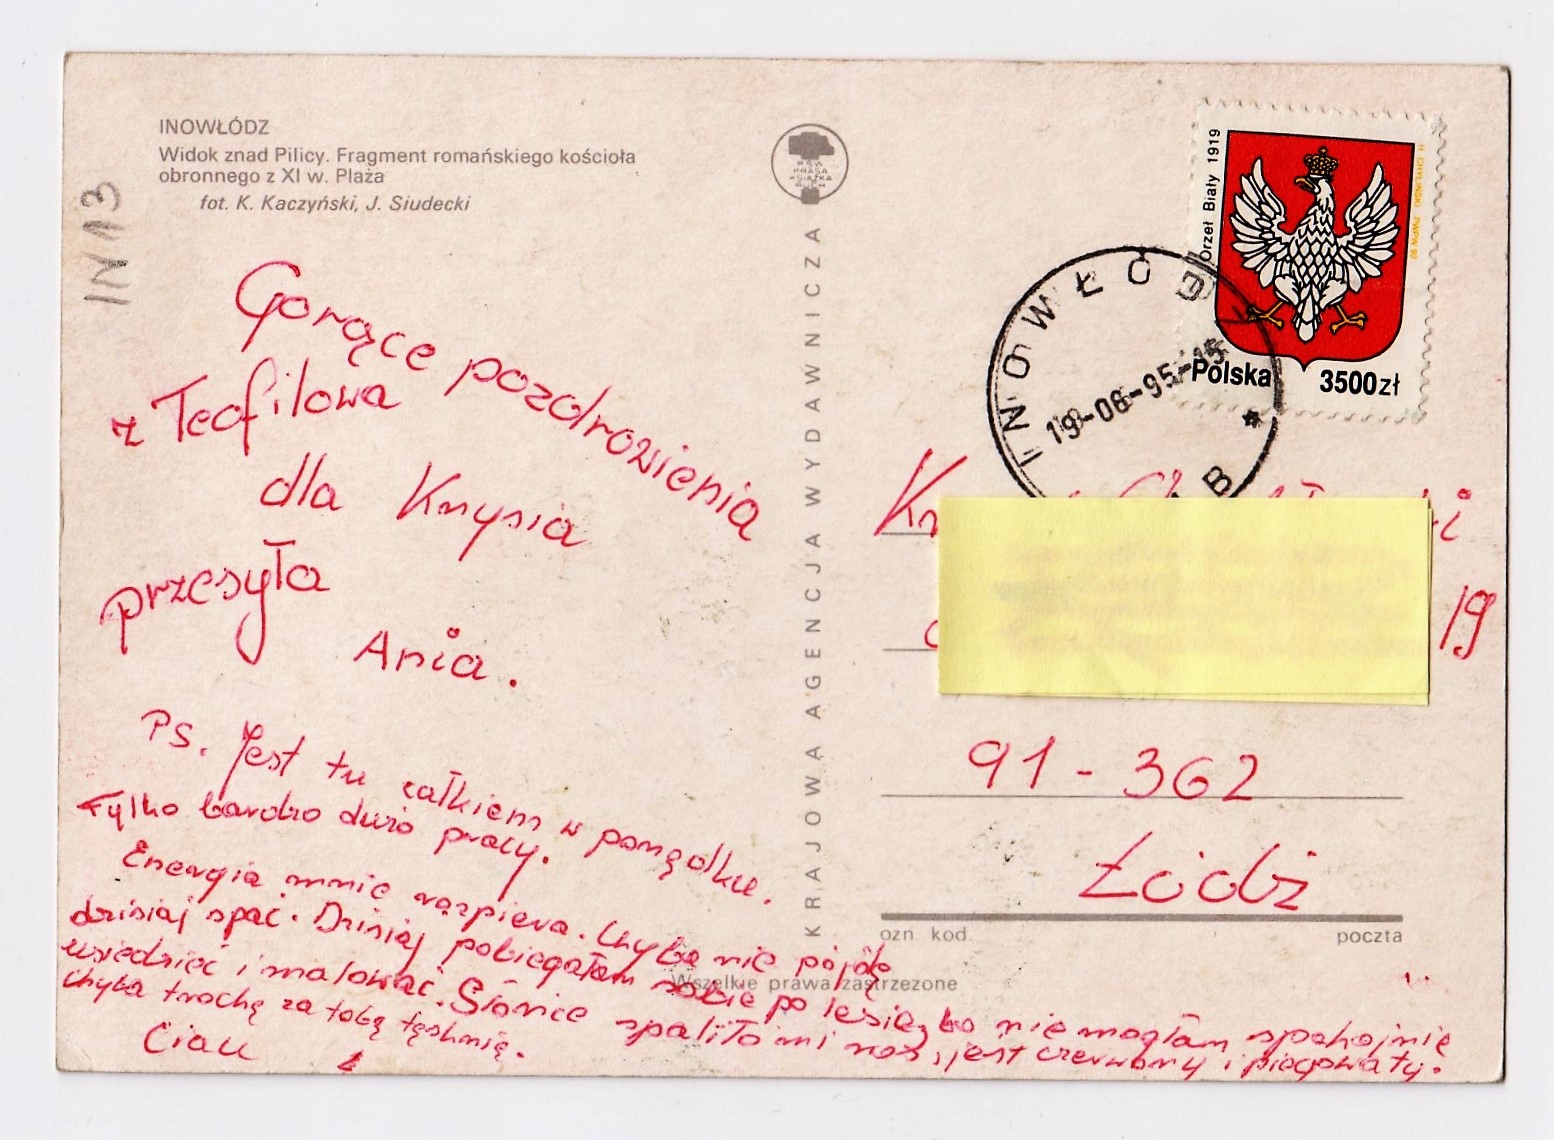 INOWŁÓDZ
Widok znad Pilicy. Fragment romańskiego kościoła
obronnego z XI w. Plaża
fot. K. Kaczyński, J. Siudecki
IN 13
RSW
PRASA
KSIĄŻKA
RUCH
KRAJOWA AGENCJA WYDAWNICZA
Orzeł Biały 1919
H. CHYLIŃSKI PWPW 92
Polska 3500 zł
INOWŁÓDZ
19-08-95-15
B
Gorące pozdrowienia
z Teofilowa
dla Krysia
przesyła
Ania.
PS. Jest tu całkiem w porządku.
Tylko bardzo dużo pracy.
Energia mnie rozpiera. Chyba nie pójdę
dzisiaj spać. Dzisiaj pobiegałam sobie po lesie, bo nie mogłam spokojnie
usiedzieć i malować. Słońce spaliło mi nos, jest czerwony i piegowaty.
Chyba trochę za tobą tęsknię.
Ciau
19
91-362
Łódź
ozn. kod. poczta
Wszelkie prawa zastrzeżone